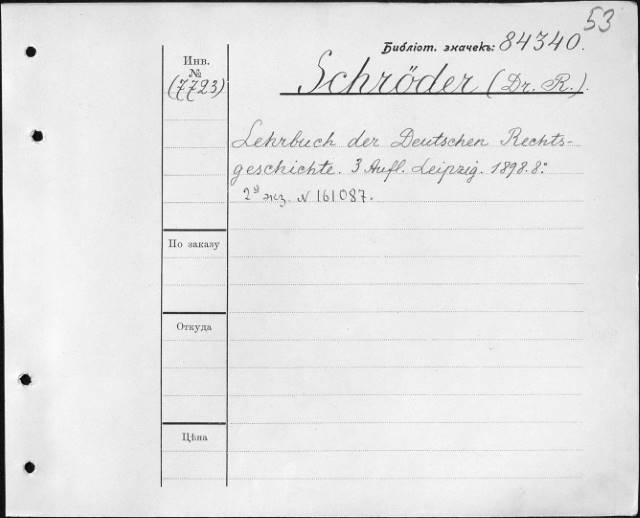 53
Библіот. значекъ: 84340.
Инв.
№
(7723)
Schröder (Dr. R.).
Lehrbuch der Deutschen Rechts-
geschichte. 3 Aufl. Leipzig. 1898. 8º
2й экз. N 161087.
По заказу
Откуда
Цѣна